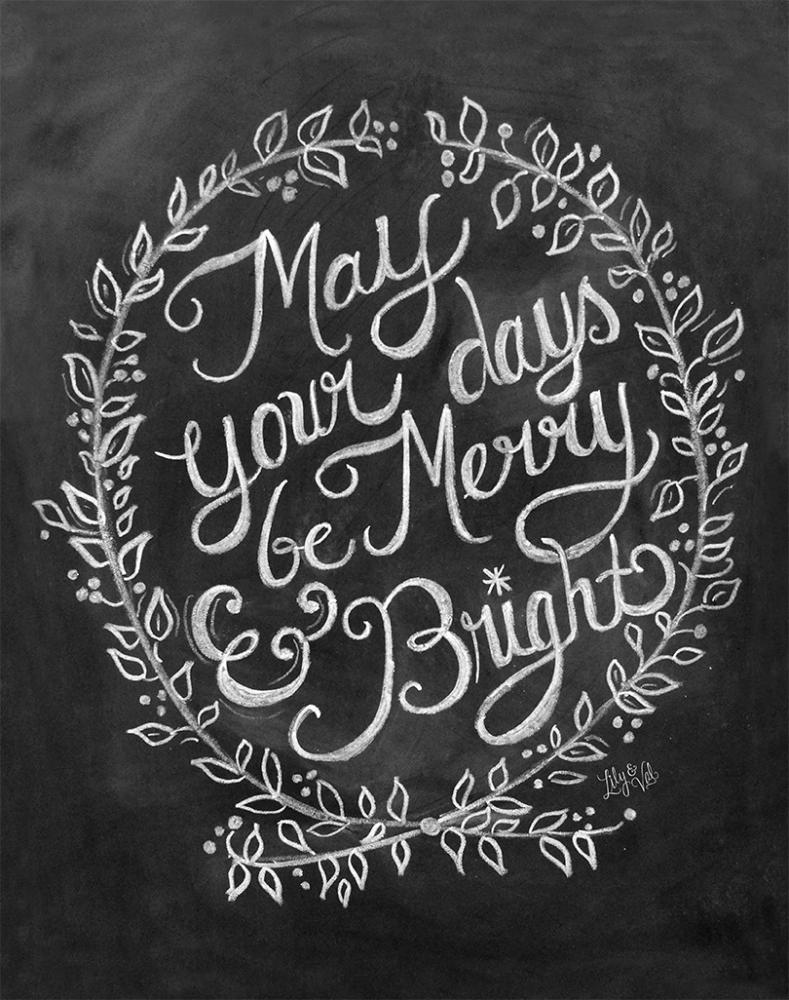 May
your days
be Merry
& Bright
Lily &
Val